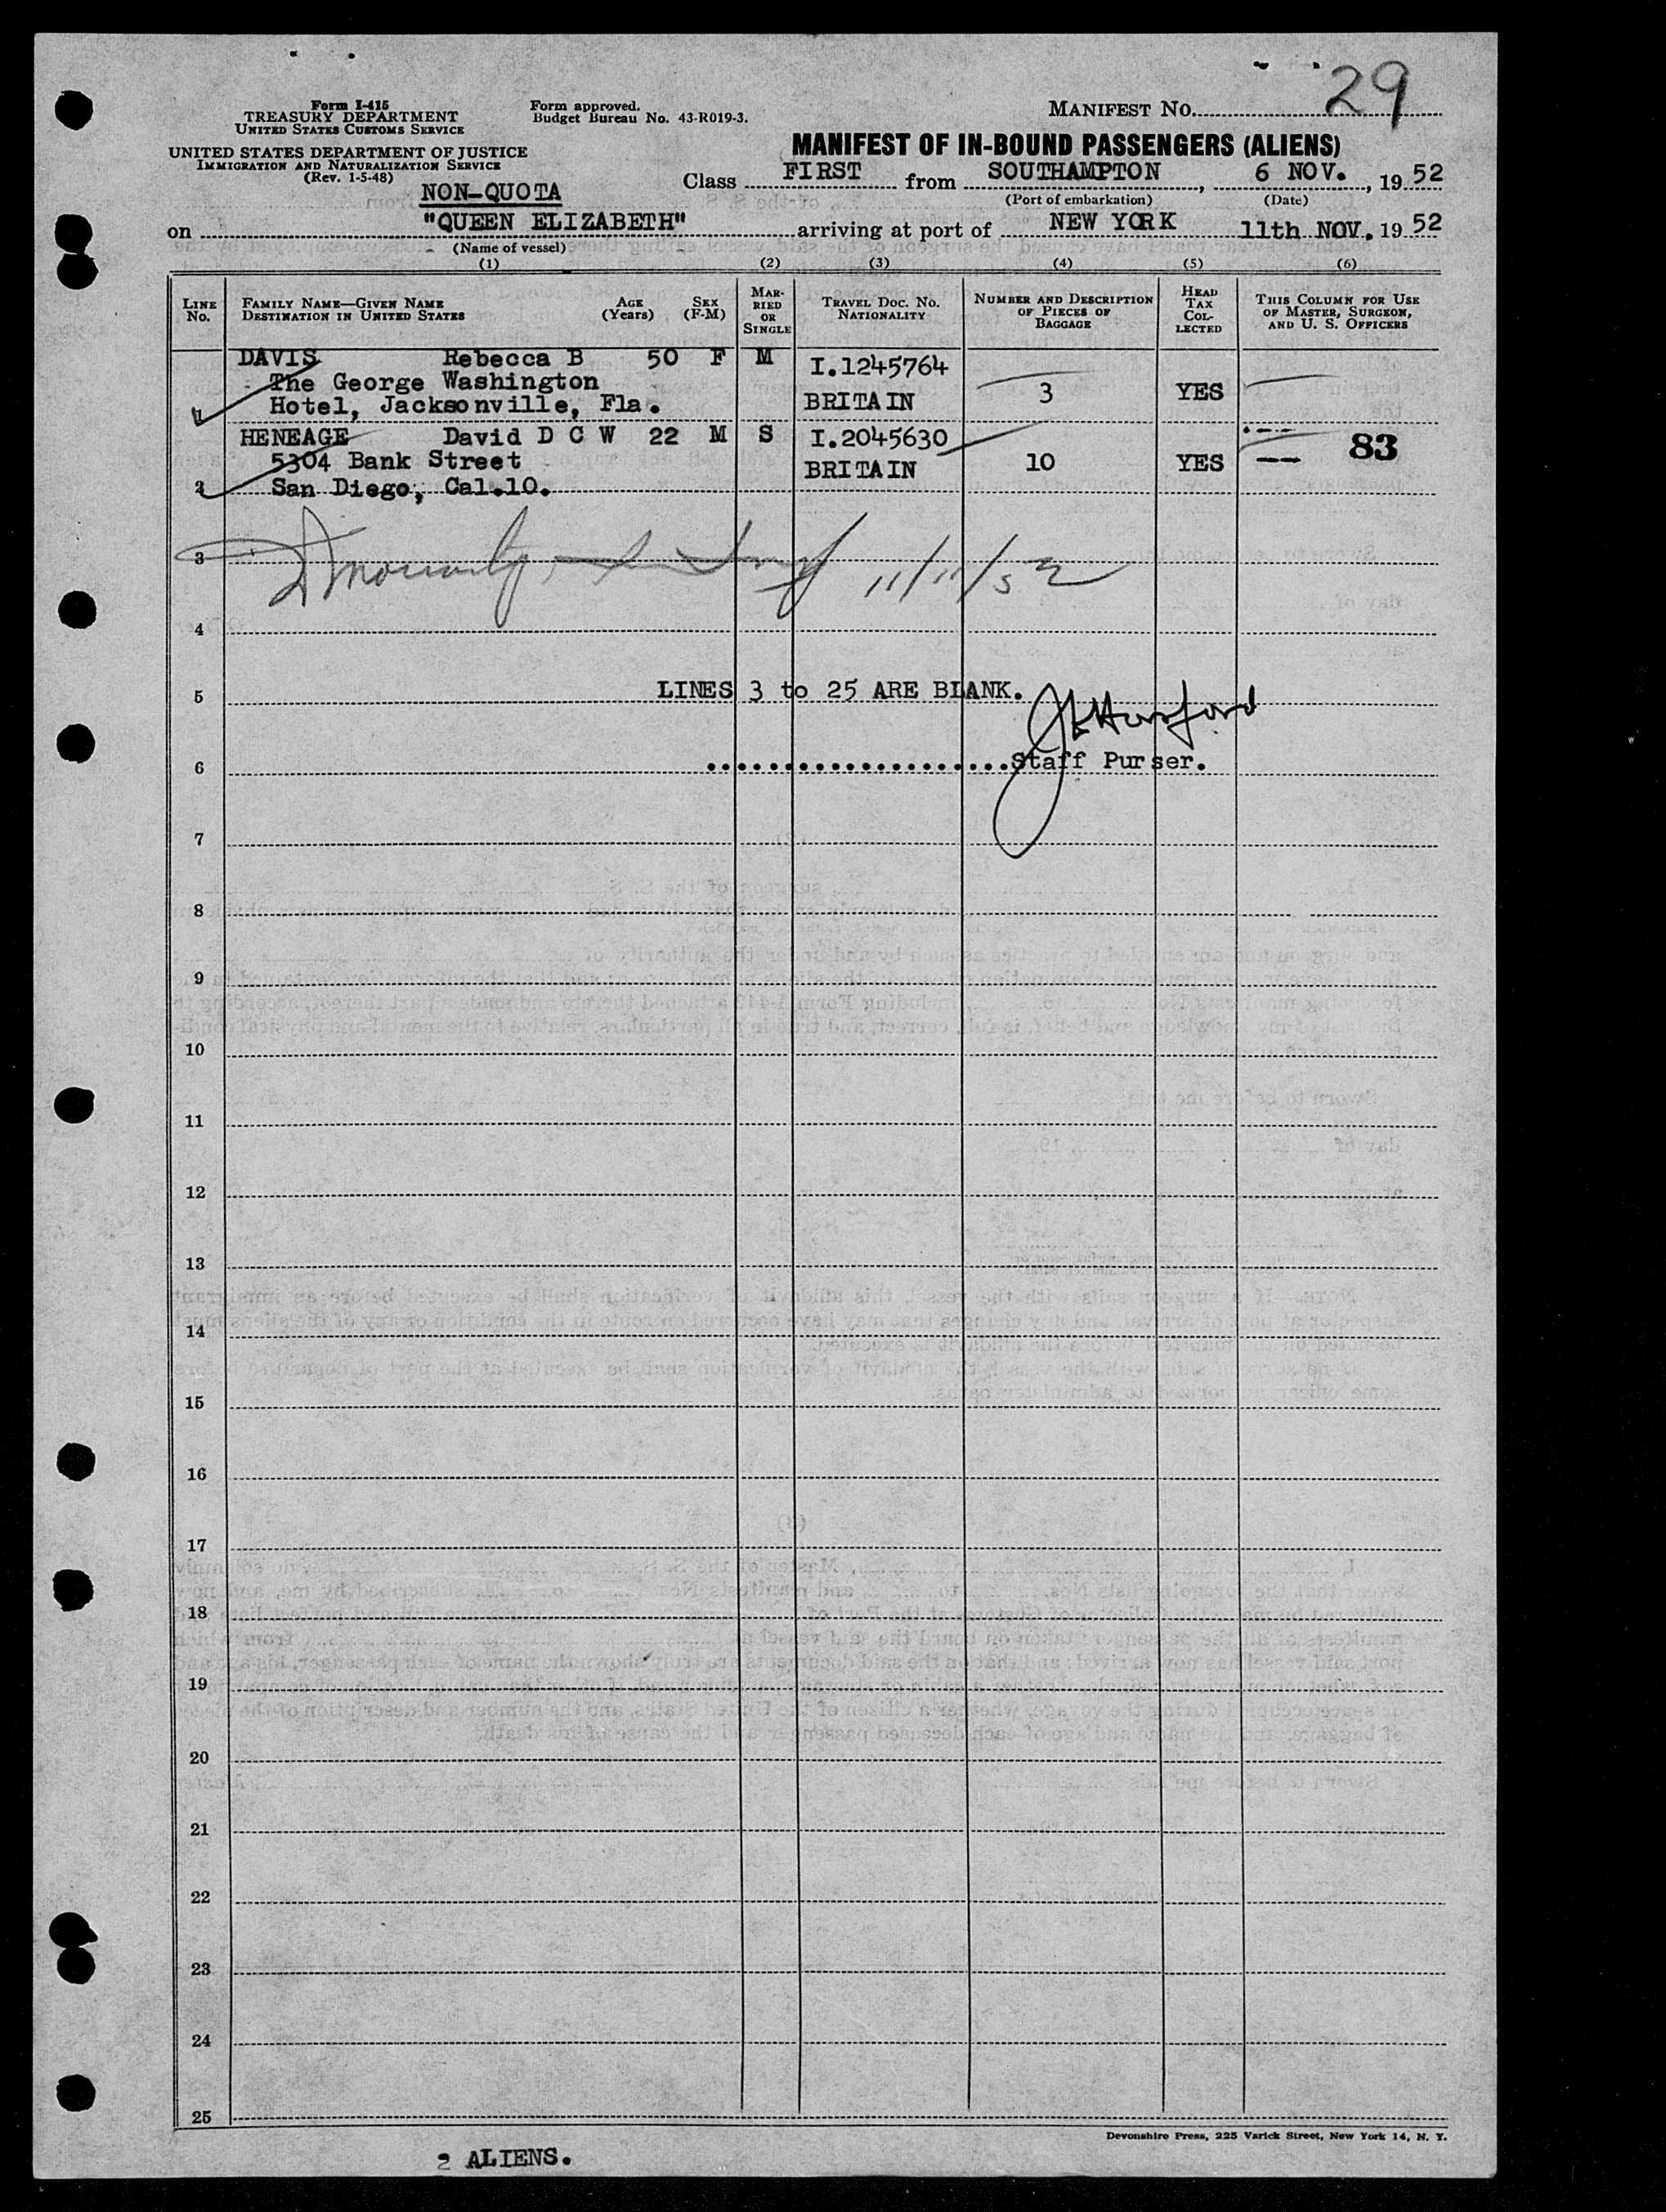 Form I-415
TREASURY DEPARTMENT
UNITED STATES CUSTOMS SERVICE
UNITED STATES DEPARTMENT OF JUSTICE
IMMIGRATION AND NATURALIZATION SERVICE
(Rev. 1-5-48)
Form approved.
Budget Bureau No. 43-R019-3.
MANIFEST No. 29
MANIFEST OF IN-BOUND PASSENGERS (ALIENS)
NON-QUOTA
Class FIRST from SOUTHAMPTON, 6 NOV., 19 52
(Port of embarkation) (Date)
on "QUEEN ELIZABETH" arriving at port of NEW YORK 11th NOV. 19 52
(Name of vessel)
(1) (2) (3) (4) (5) (6)
LINE No.
FAMILY NAME—GIVEN NAME
DESTINATION IN UNITED STATES
AGE (Years)
SEX (F-M)
MARRIED OR SINGLE
TRAVEL DOC. NO.
NATIONALITY
NUMBER AND DESCRIPTION OF PIECES OF BAGGAGE
HEAD TAX COLLECTED
THIS COLUMN FOR USE OF MASTER, SURGEON, AND U. S. OFFICERS
DAVIS Rebecca B 50 F M I.1245764
The George Washington
1 Hotel, Jacksonville, Fla. BRITAIN 3 YES
HENEAGE David D C W 22 M S I.2045630 83
5304 Bank Street BRITAIN 10 YES
2 San Diego, Cal.10.
3 11/11/52
4
5 LINES 3 to 25 ARE BLANK.
6 Staff Purser.
7
8
9
10
11
12
13
14
15
16
17
18
19
20
21
22
23
24
25
Devonshire Press, 225 Varick Street, New York 14, N. Y.
2 ALIENS.